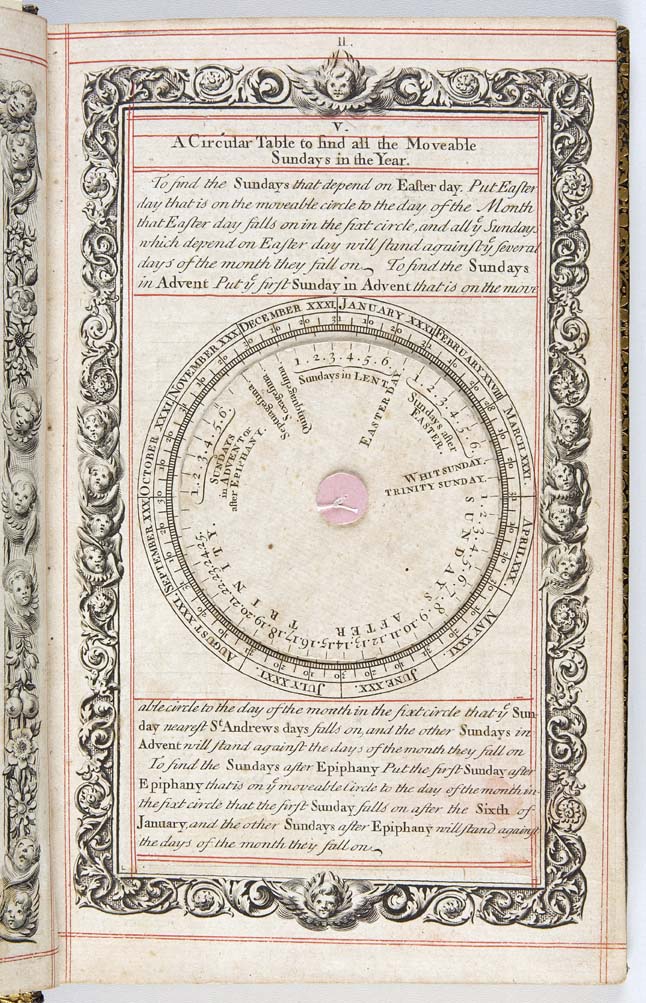 II.
V.
A Circular Table to find all the Moveable
Sundays in the Year.
To find the Sundays that depend on Easter day. Put Easter
day that is on the moveable circle to the day of the Month
that Easter day falls on in the fixt circle, and all yͤ Sunday.
which depend on Easter day will stand against yͤ several
days of the month they fall on To find the Sundays
in Advent Put yͤ first Sunday in Advent that is on the move
JANUARY XXXI
FEBRUARY XXVIII
MARCH XXXI.
APRIL XXX.
MAY XXXI.
JUNE XXX.
JULY XXXI.
AUGUST XXXI.
SEPTEMBER XXX
OCTOBER XXXI
NOVEMBER XXX
DECEMBER XXXI
1. 2. 3. 4. 5. 6.
SUNDAYS
in ADVENT or
after EPIPHANY.
Septuagesima
Sexagesima
Quinquagesima
1. 2. 3. 4. 5. 6.
Sundays in LENT.
EASTER DAY
1. 2. 3. 4. 5. 6.
Sundays after
EASTER.
WHITSUNDAY.
TRINITY SUNDAY.
1. 2. 3. 4. 5. 6. 7. 8. 9. 10. 11. 12. 13. 14. 15. 16. 17. 18. 19. 20. 21. 22. 23. 24. 25.
SUNDAYS AFTER TRINITY.
able circle to the day of the month in the fixt circle that yͤ Sun-
day nearest Sᵗ Andrews days falls on, and the other Sundays in
Advent will stand against the days of the month they fall on
To find the Sundays after Epiphany Put the first Sunday after
Epiphany that is on yͤ moveable Circle to the day of the month in
the fixt circle that the first Sunday falls on after the Sixth of
January, and the other Sundays after Epiphany will stand against
the days of the month they fall on